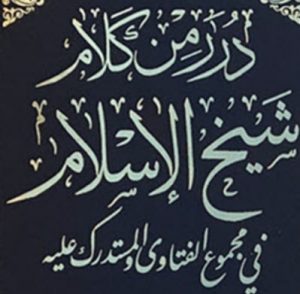 درر من كلام
شيخ الإسلام
في مجموع الفتاوى والمستدرك عليه